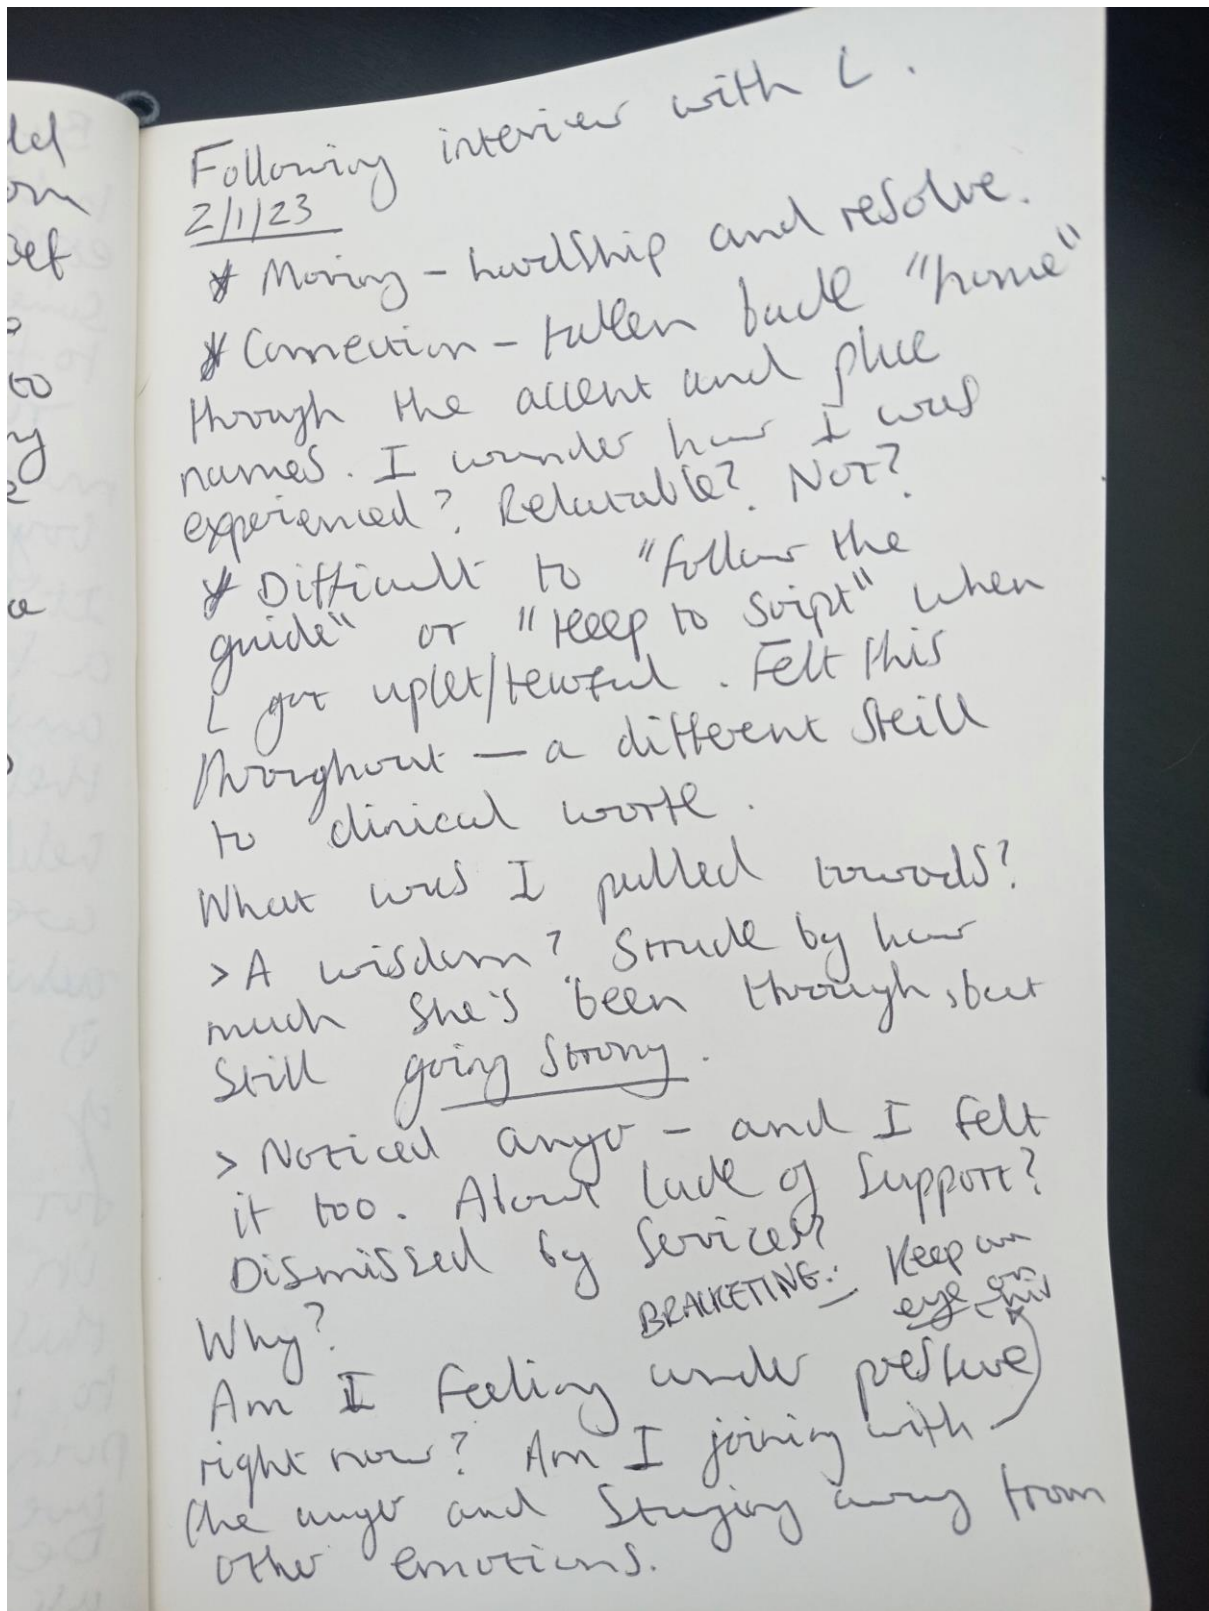 Following interview with L.
2/1/23
* Moving - hardship and resolve.
* Connection - taken back "home"
through the accent and place
names. I wonder how I was
experienced? Relatable? Not?
* Difficult to "follow the
guide" or "keep to script" when
L got upset/tearful. Felt this
throughout - a different skill
to clinical work.
What was I pulled towards?
> A wisdom? Struck by how
much she's been through, but
still going strong.
> Noticed anger - and I felt
it too. About lack of support?
Dismissed by services?
Why?
BRACKETING:- Keep an
eye on this
Am I feeling under pressure
right now? Am I joining with
the anger and staying away from
other emotions.